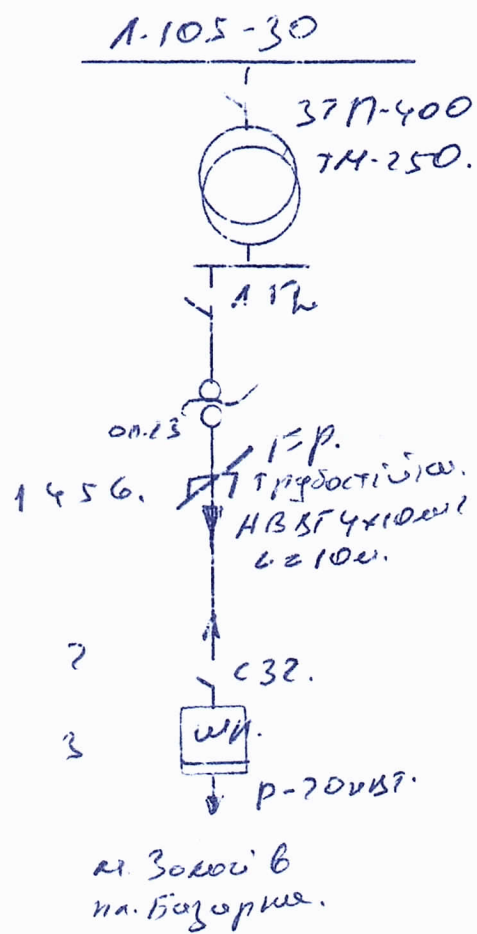 Л-105-30
ЗТП-400
ТМ-250.
оп.23
Гр.
1 4 5 6.
Трубостійк.
НВВГ 4х10мм2
L=10м.
2
С32.
3
шл.
Р-20кВт.
м. Золочів
пл. Базарна.